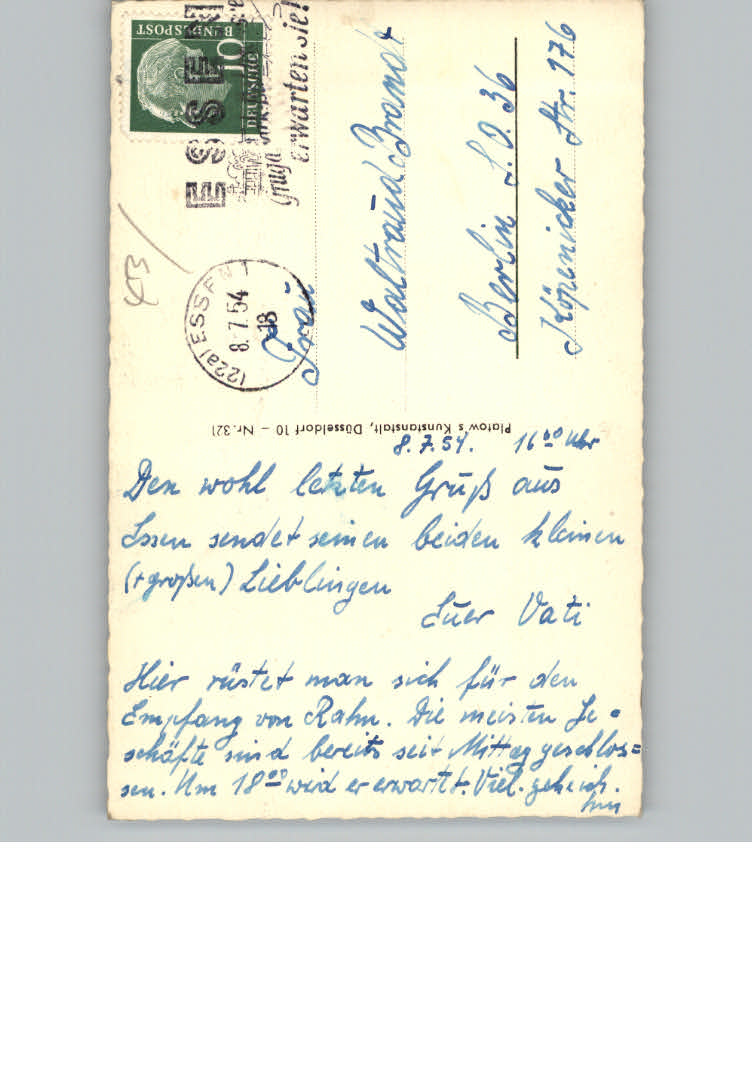 8.7.54. 16⁰⁰ Uhr
Den wohl letzten Gruß aus
Essen sendet seinen beiden kleinen
(+ großen) Lieblingen
Euer Vati
Hier rüstet man sich für den
Empfang von Rahn. Die meisten Ge=
schäfte sind bereits seit Mittag geschlos=
sen. Um 18⁰⁰ wird er erwartet. Viel. geh ich
hin
Platow's Kunstanstalt, Düsseldorf 10 – Nr. 321
Frau
Waltraud Brandt
Berlin S.O. 36
Köpenicker Str. 176
(22a) ESSEN 1
8.7.54
18
ESSEN
Gruga
erwarten Sie!
DEUTSCHE
BUNDESPOST
10